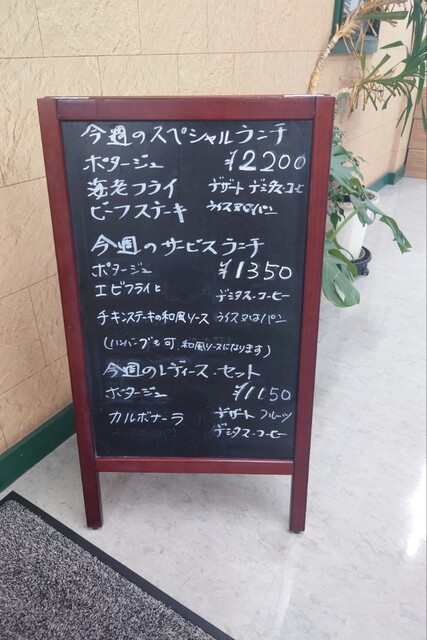 今週のスペシャルランチ
ポタージュ ¥2200
海老フライ デザート デミタスコーヒ
ビーフステーキ ライス又はパン
今週のサービスランチ
ポタージュ ¥1350
エビフライと デミタス・コーヒー
チキンステーキの和風ソース ライス又はパン
(ハンバーグも可 和風ソースになります)
今週のレディース・セット
ポタージュ ¥1150
カルボナーラ デザート フルーツ
デミタス・コーヒー